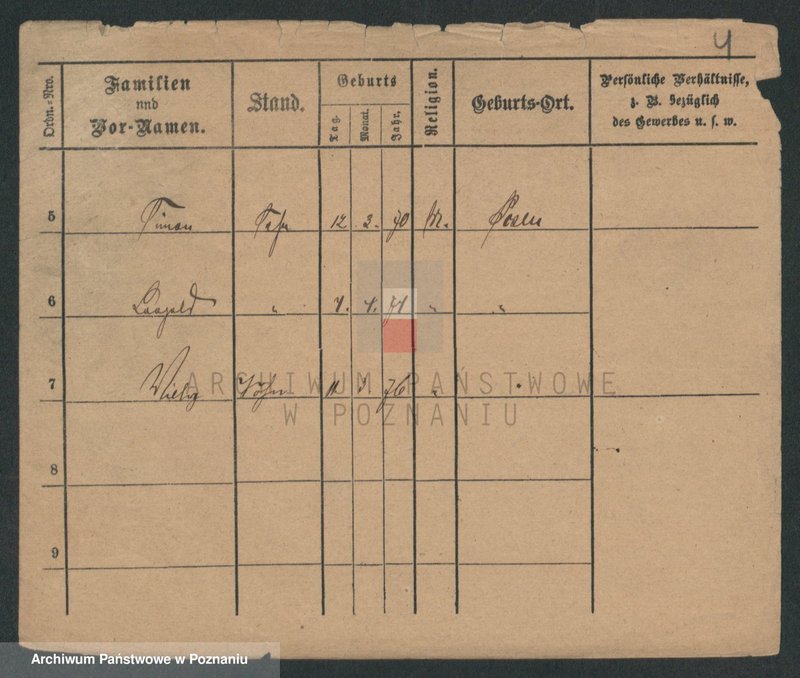 4
Ordn.-Nro.
Familien
und
Vor-Namen.
Stand.
Geburts
Tag.
Monat.
Jahr.
Religion.
Geburts-Ort.
Persönliche Verhältnisse,
z. B. bezüglich
des Gewerbes u. s. w.
5 Simon 12 3. 70 Posen
6 Leopold " 71 " "
7 76 "
ARCHIWUM PAŃSTWOWE
W POZNANIU
8
9
Archiwum Państwowe w Poznaniu